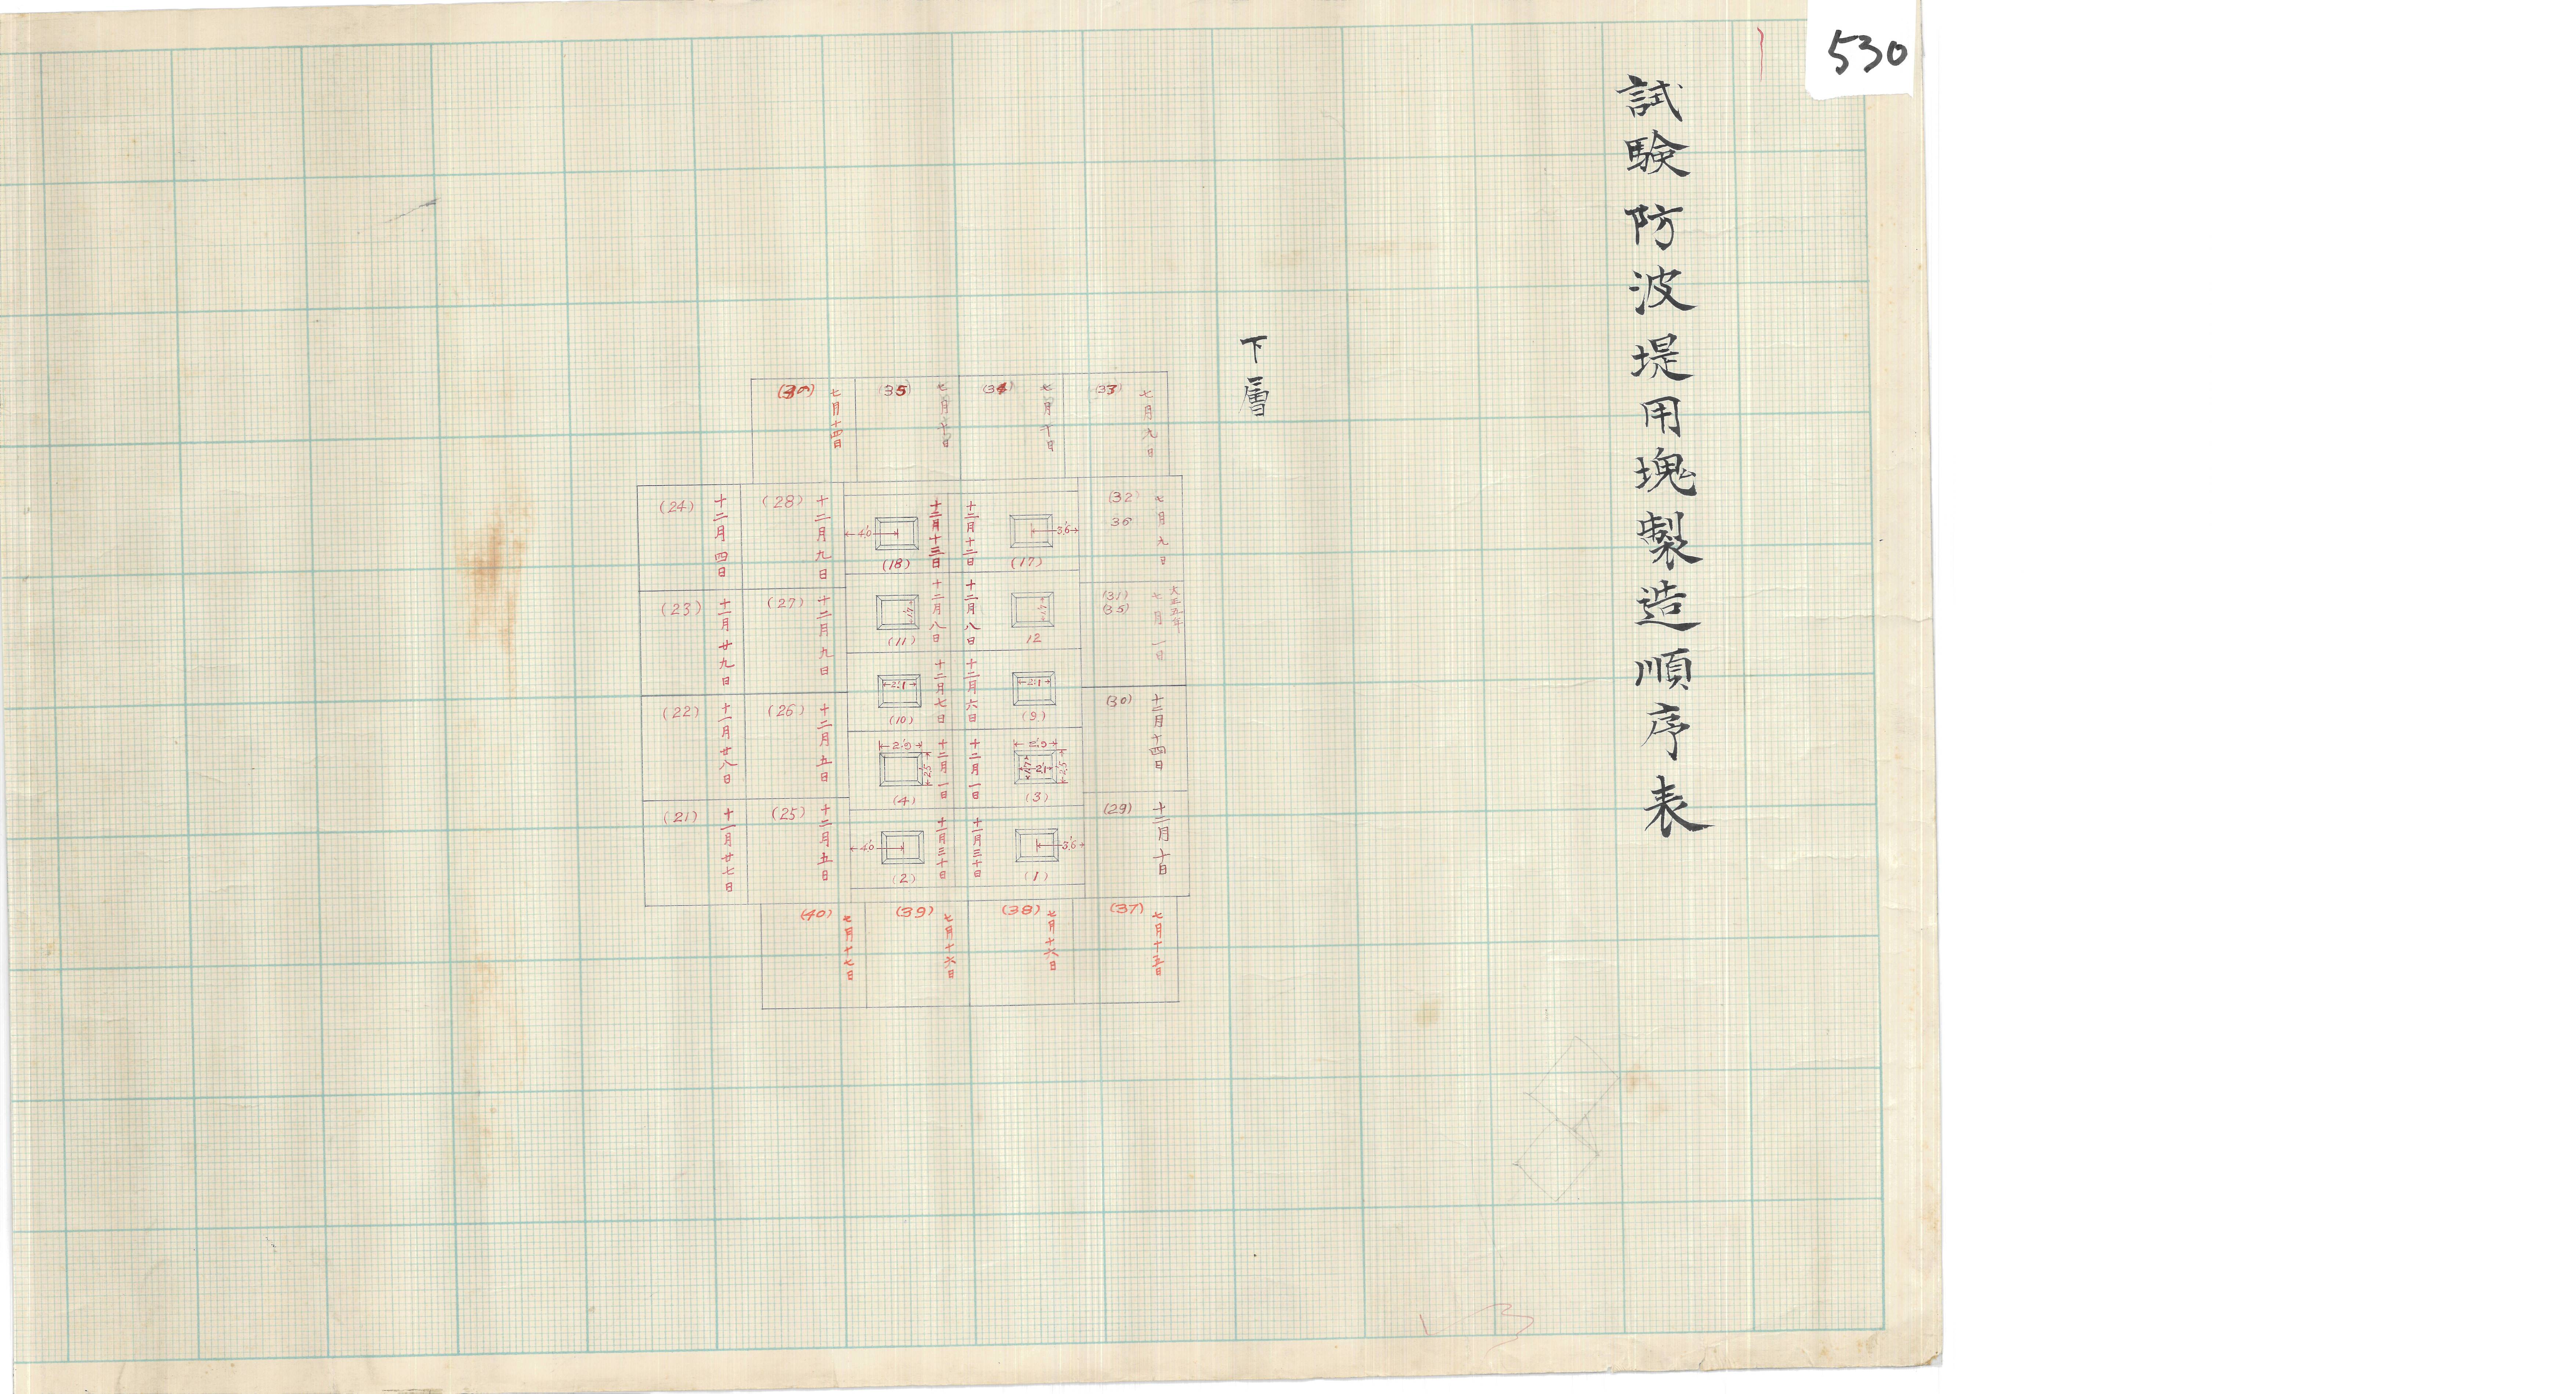 530
試験防波堤用塊製造順序表
下層
(33)
七月九日
(34)
七月十日
(35)
七月十日
七月十四日
(32)
36
七月九日
(17)
3'.6
十二月十二日
(18)
4'.0
十二月十三日
(28)
十二月九日
(24)
十二月四日
大正五年
(31)
(35)
七月一日
12
1'.7
十二月八日
(11)
1'.7
十二月八日
(27)
十二月九日
(23)
十一月廿九日
(30)
十二月十四日
(9)
2'.1
十二月六日
(10)
2'.1
十二月七日
(26)
十二月五日
(22)
十一月廿八日
(3)
2'.9
2'.5
2'.1
1'.7
十二月一日
(4)
2'.9
2'.5
十二月一日
(29)
十二月十日
(1)
3'.6
十一月三十日
(2)
4'.0
十一月三十日
(25)
十二月五日
(21)
十一月廿七日
(37)
七月十三日
(38)
七月十六日
(39)
七月十六日
(40)
七月十七日